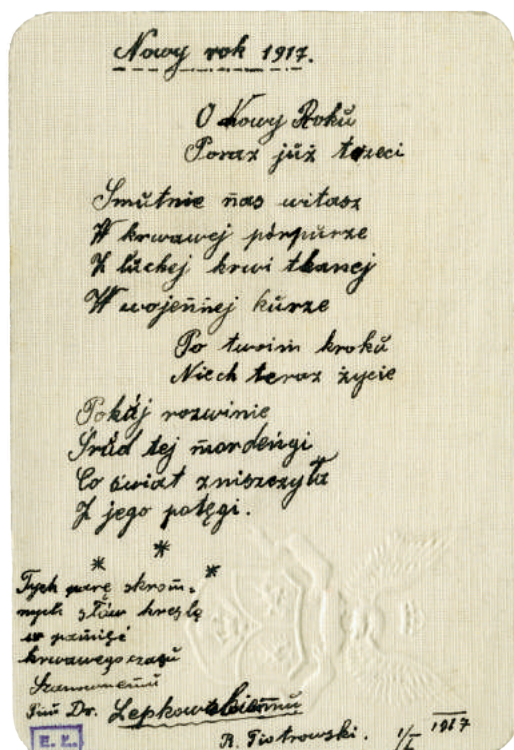 Nowy rok 1917.
O Nowy Rokŭ
Poraz jŭż trzeci
Smŭtnie nas witasz
W krwawej pŭrpŭrze
Z lŭckej krwi tkanej
W wojennej kŭrze
Po twoim krokŭ
Niech teraz życie
Pokŭj rozwinie
Śrŭd tej mordeŭgi
Co świat zniszczyła
Z jego potęgi.
* * *
Tych parę skrom-
nych słów kreślę
w pamięć
krwawego czasŭ
Szanownemŭ
Dr. Łepkowskiemŭ
R. Piotrowski. 1/I 1917
E. Ł.